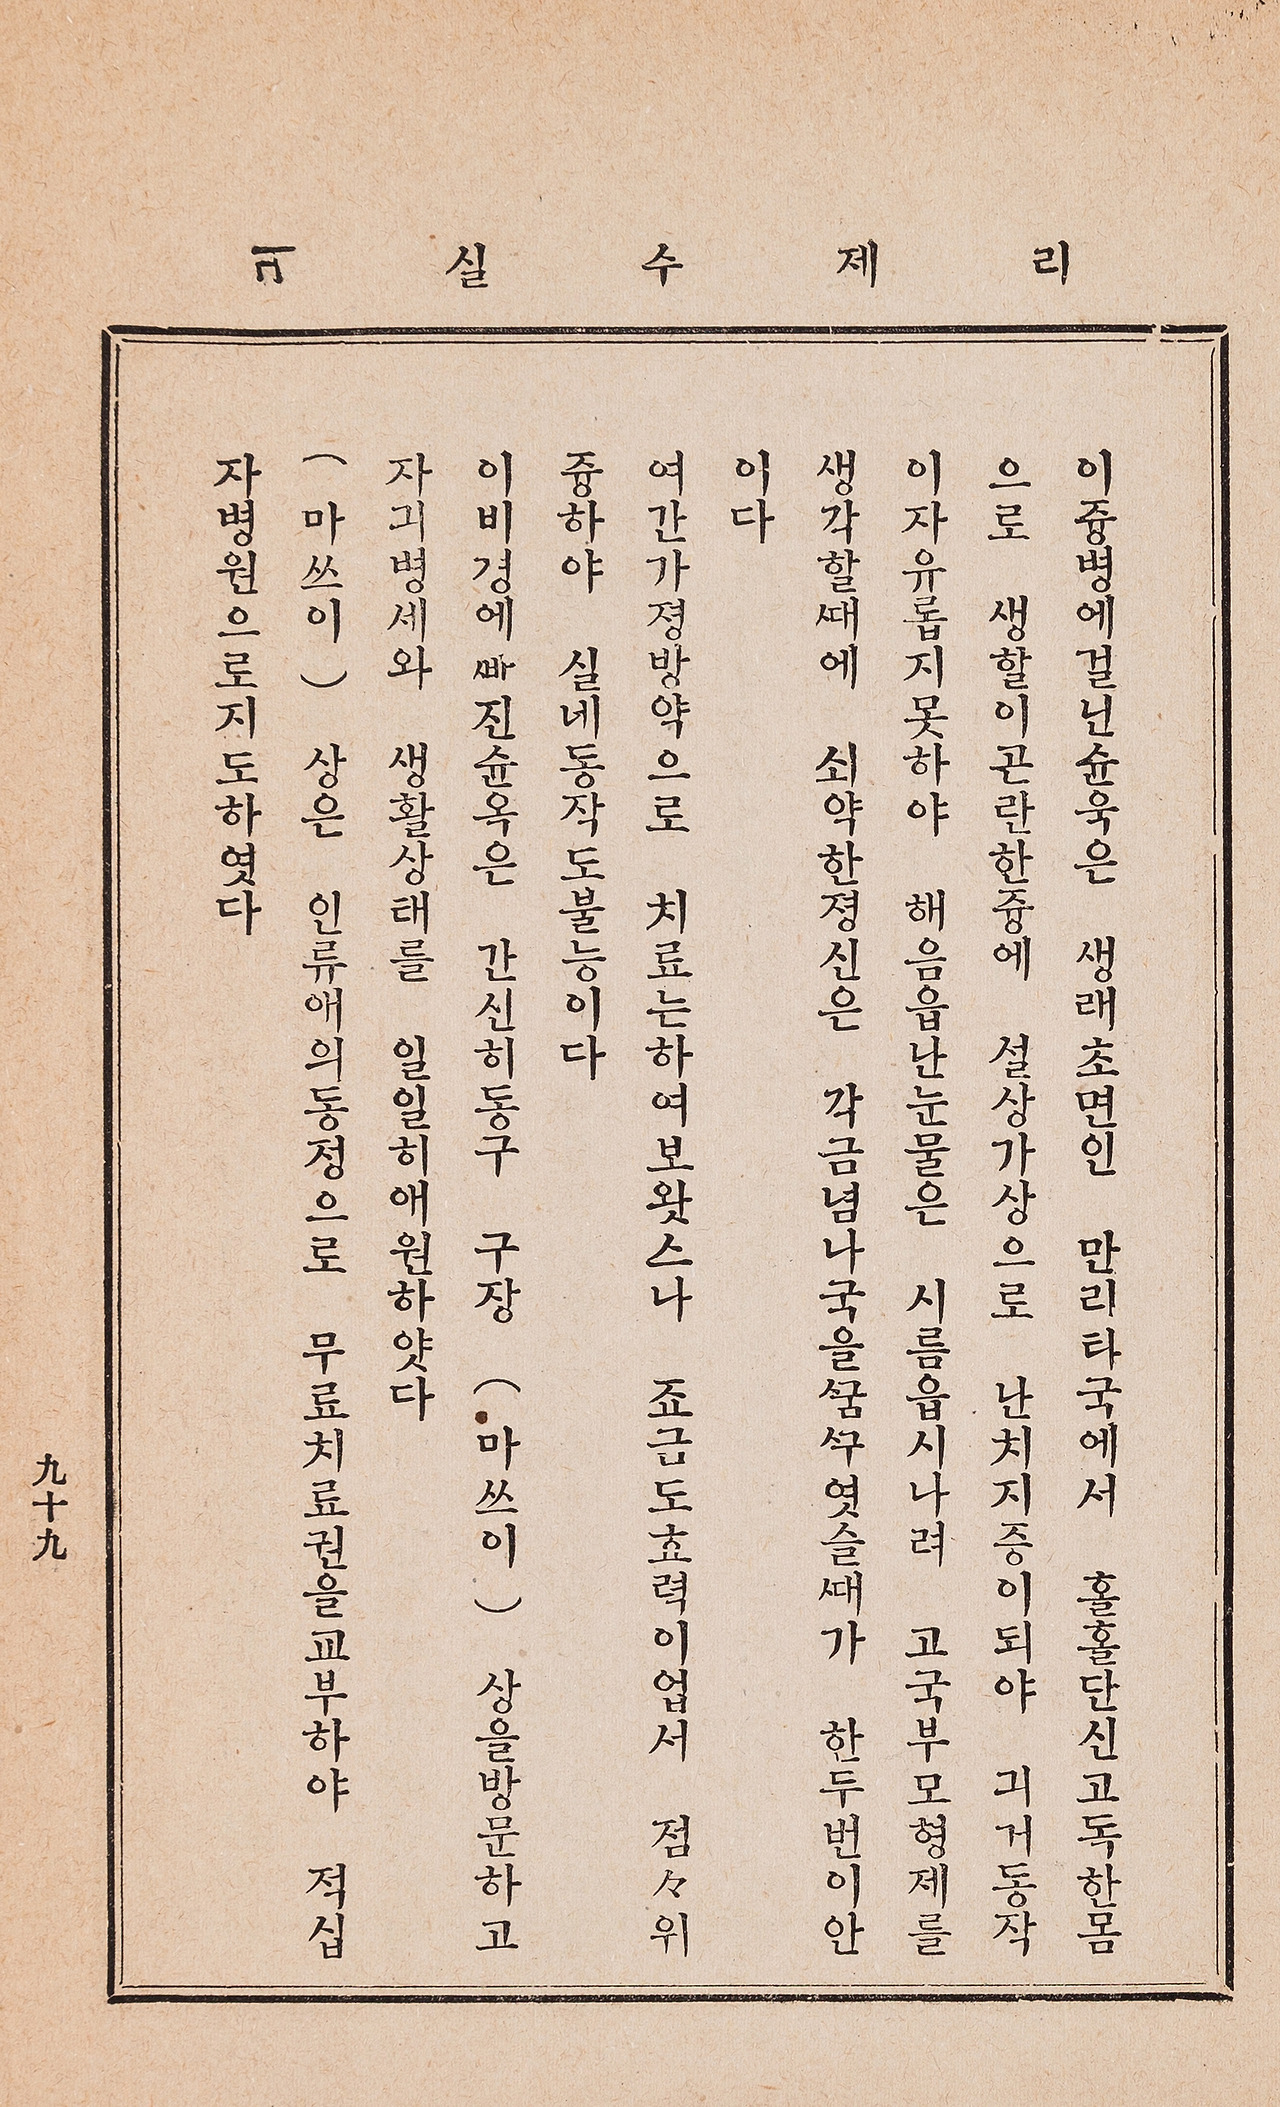 리제수실
이즁병에걸닌슌욱은 생래초면인 만리타국에서 홀홀단신고독한몸
으로 생할이곤란한즁에 설상가상으로 난치지증이되야 긔거동작
이자유롭지못하야 해음읍난눈물은 시름읍시나려 고국부모형제를
생각할ᄯᅢ에 쇠약한졍신은 각금념나국을ᄭᅮᆷᄭᅮ엿슬ᄯᅢ가 한두번이안
이다
여간가졍방약으로 치료는하여보왓스나 죠금도효력이업서 점々위
즁하야 실네동작도불능이다
이비경에ᄲᅡ진슌옥은 간신히동구 구장 (마쓰이) 상을방문하고
자긔병세와 생활상태를 일일히애원하얏다
(마쓰이) 상은 인류애의동정으로 무료치료권을교부하야 적십
자병원으로지도하엿다
九十九